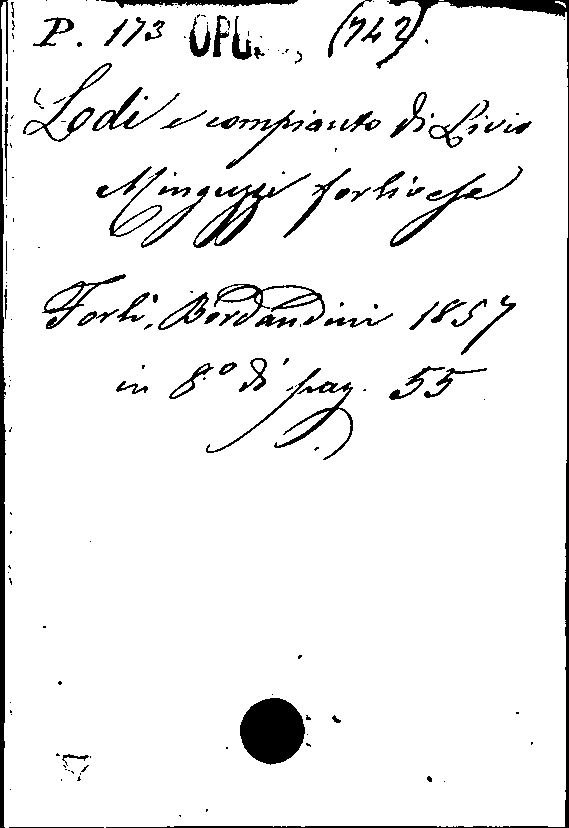 P. 173 OPU. (742).
Lodi e compianto di Livio
Minguzzi forlivese
Forlì, Bordandini 1857
in 8.° di pag. 55